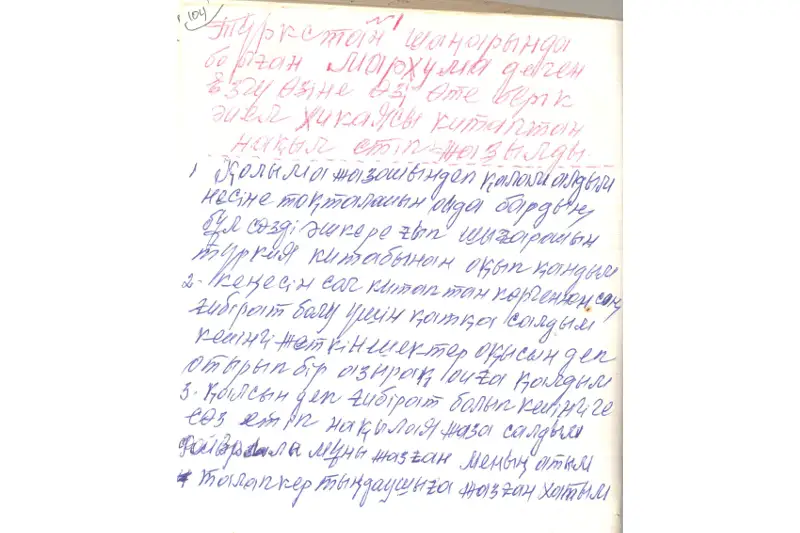 104
Түркстан шаһарында
болған Мархума деген
өзіне өзі өте берік
әйел хикаясы китаптан
нақыл етіп жазылды.
1 Қолыма жазашын деп қалам алдым
несіне тоқталайын онда бардың
бұл сөзді әшкере ғып шығарайын
түркия китабынан оқып қандым
2- кеңесін сол китаптан көргеннен соң
ғибірат болу үшін қатқа салдым
кейінгі жеткіншектер оқысын деп
отырып бір азырақ ойға қалдым
3. Қалсын деп ғибірат болып кейінгіге
сөз етіп нақылая жаза салдым
мұны жазған менің атым
4 талапкер тыңдаушыға жазған хатым